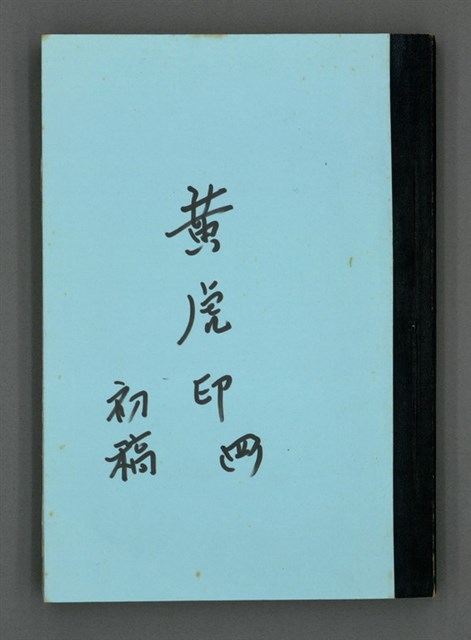 黃虎印
四
初稿